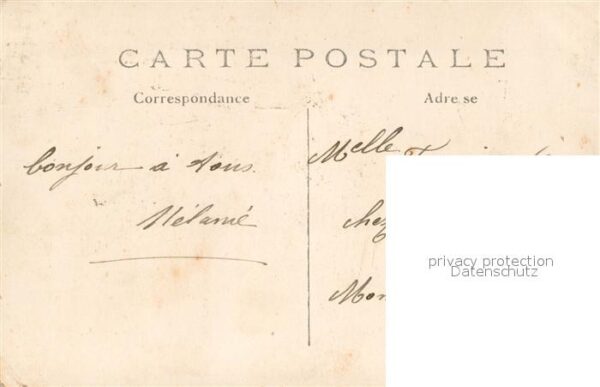 CARTE POSTALE
Correspondance
Adresse
bonjour à tous
Mélanie
Melle
chez
privacy protection
Datenschutz